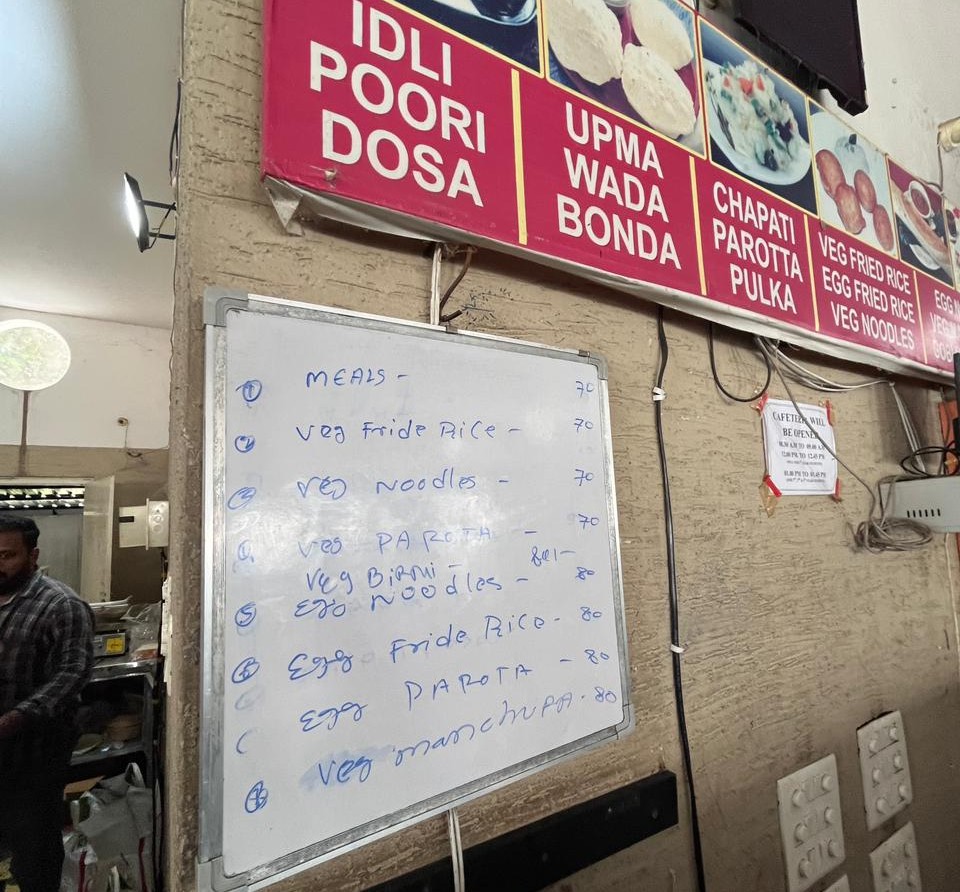 IDLI
POORI
DOSA
UPMA
WADA
BONDA
CHAPATI
PAROTTA
PULKA
VEG FRIED RICE
EGG FRIED RICE
VEG NOODLES
EGG
① MEALS - 70
② Veg Fride Rice - 70
③ veg Noodles - 70
veg PAROTA - 70
veg BIRNI - 80/-
⑤ Egg Noodles - 80
⑥ Egg Fride Rice - 80
Egg PAROTA - 80
⑧ Veg manchupa - 80
CAFETERIA WILL
BE OPENED